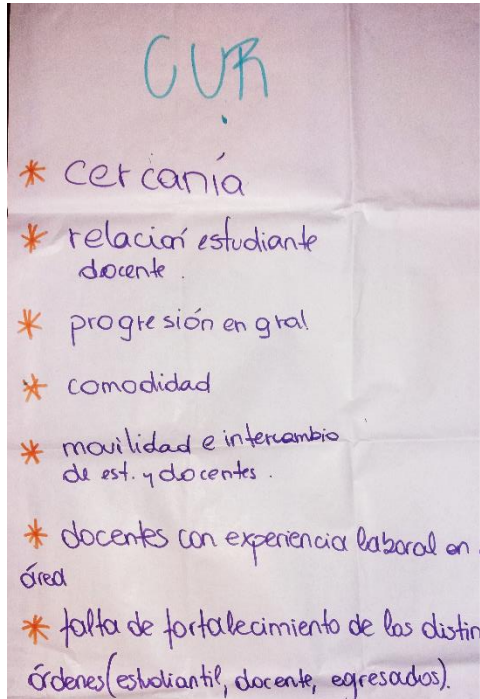 CUR
* cercanía
* relación estudiante
docente.
* progresión en gral
* comodidad
* movilidad e intercambio
de est. y docentes.
* docentes con experiencia laboral en
área
* falta de fortalecimiento de los distin
órdenes (estudiantil, docente, egresados).